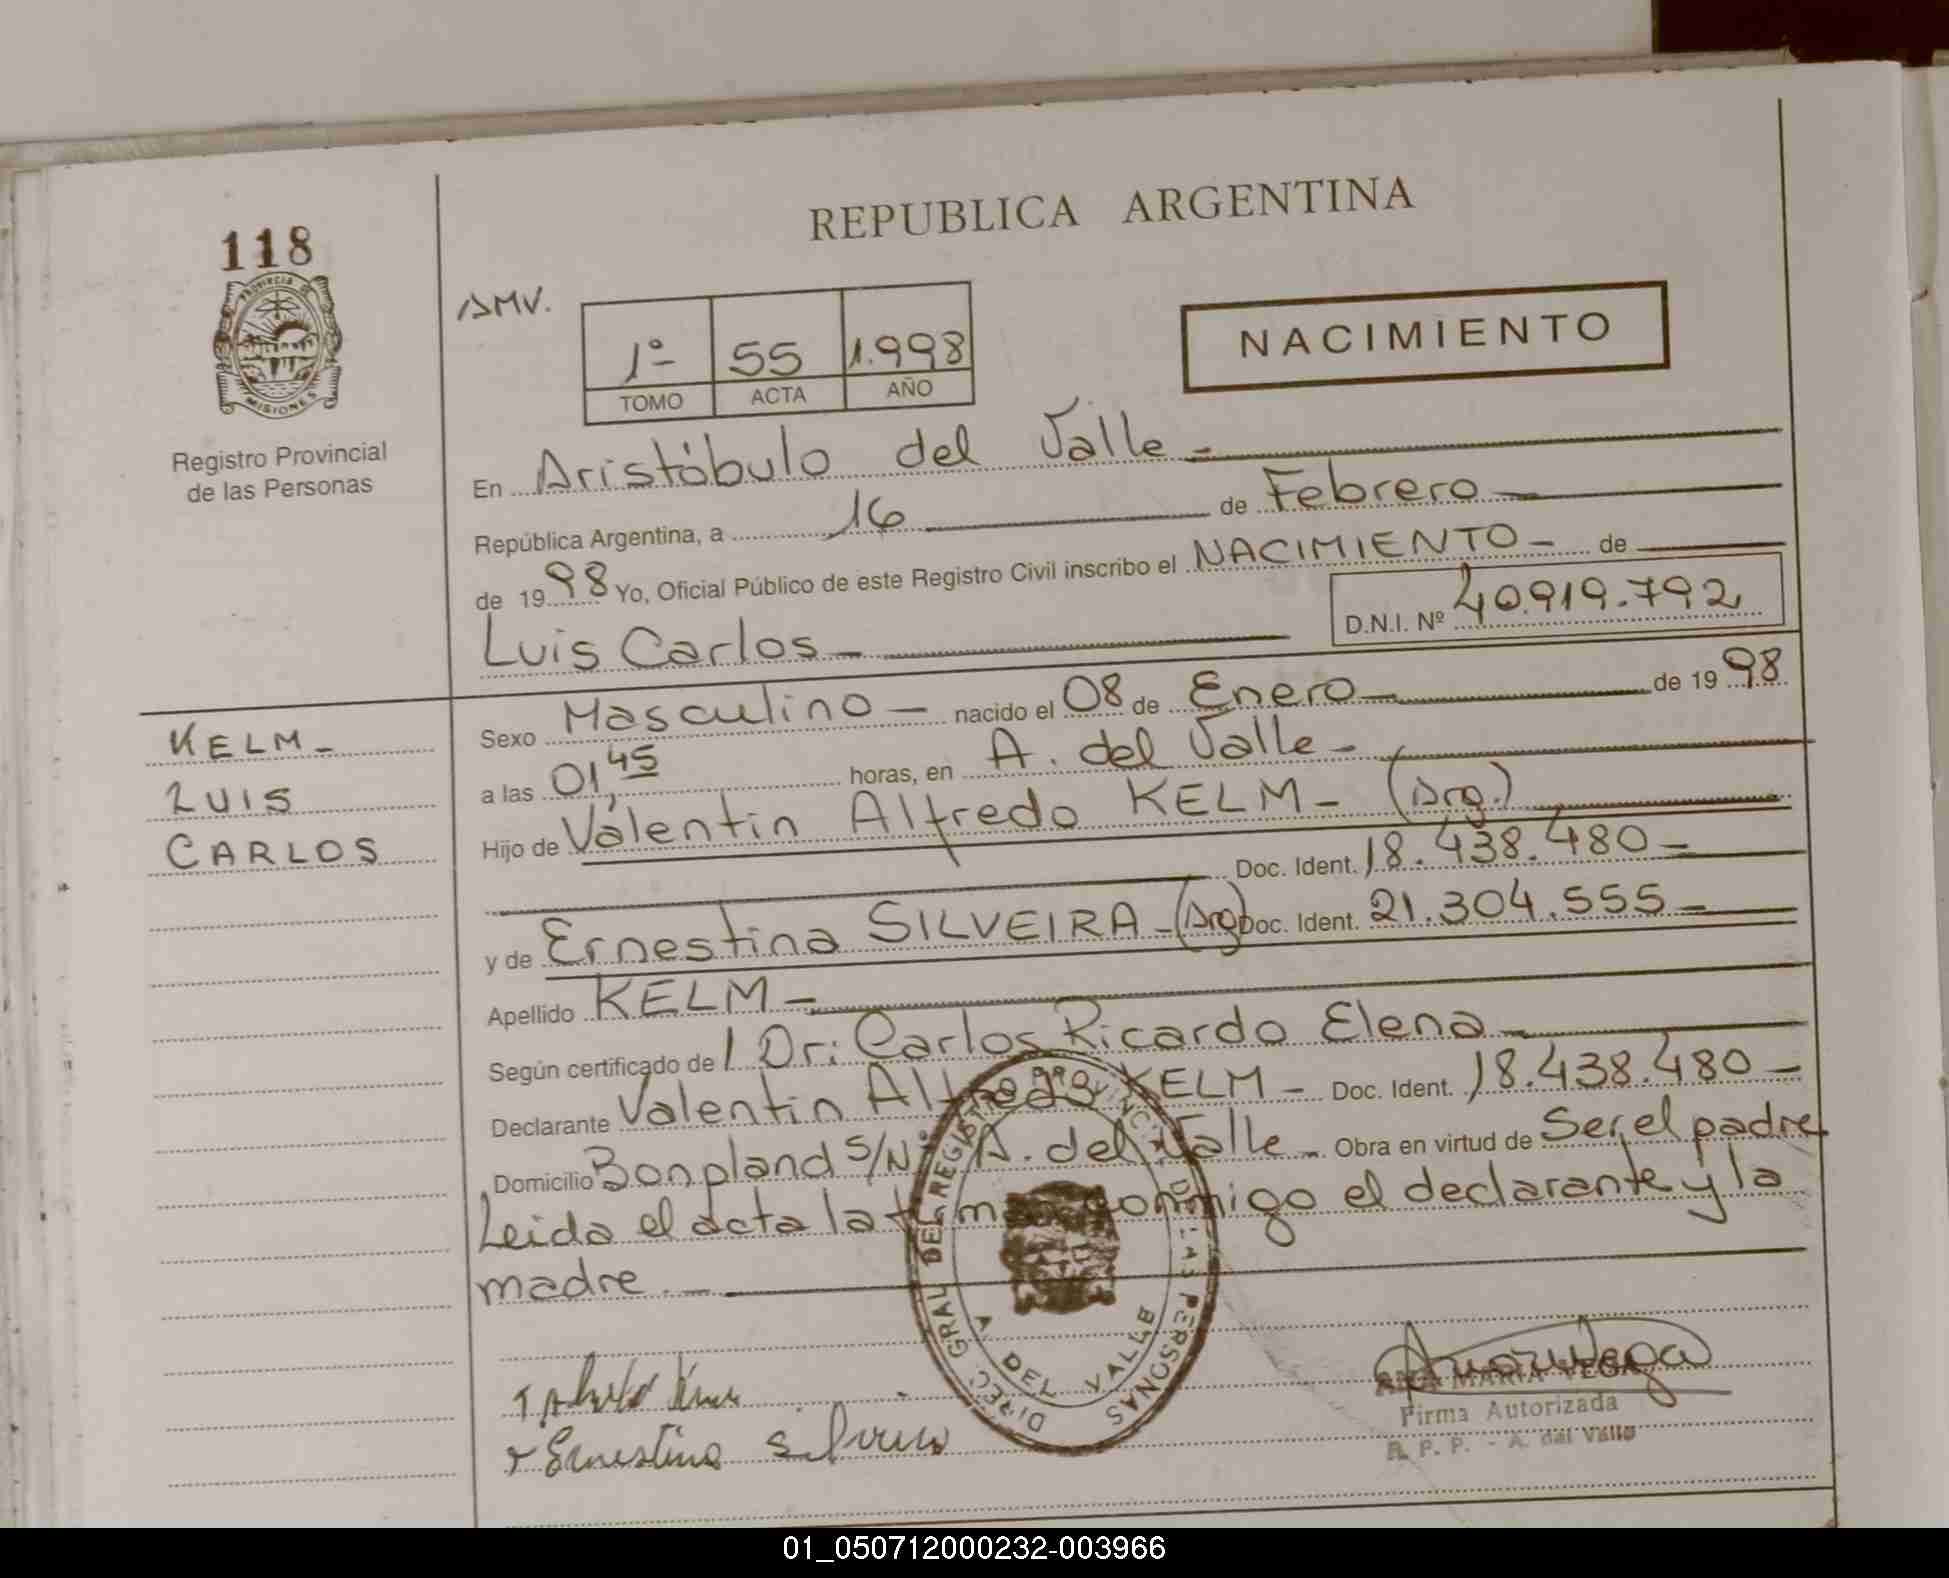 118
PROVINCIA DE
MISIONES
Registro Provincial
de las Personas
KELM -
LUIS
CARLOS
REPUBLICA ARGENTINA
AMV.
1º 55 1.998
TOMO ACTA AÑO
NACIMIENTO
En Aristóbulo del Valle -
República Argentina, a 16 de Febrero -
de 1998 Yo, Oficial Público de este Registro Civil inscribo el NACIMIENTO - de
Luis Carlos - D.N.I. Nº 40.919.792
Sexo Masculino - nacido el 08 de Enero - de 1998
a las 01,45 horas, en A. del Valle -
Hijo de Valentin Alfredo KELM - (Arg.)
Doc. Ident. 18.438.480 -
y de Ernestina SILVEIRA - (Arg) Doc. Ident. 21.304.555 -
Apellido KELM -
Según certificado de / Dr: Carlos Ricardo Elena -
Declarante Valentin Alfredo KELM - Doc. Ident. 18.438.480 -
Domicilio Bonpland S/Nº A. del Valle - Obra en virtud de Ser el padre
Leida el acta la firman conmigo el declarante y la
madre. -
Ernestina Silveira
DIREC. GRAL DEL REGISTRO PROVINCIAL DE LAS PERSONAS
A DEL VALLE
ANA MARIA VEGA
Firma Autorizada
R. P. P. - A. del Valle
01_050712000232-003966